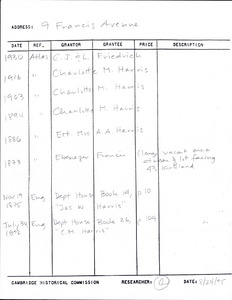 ADDRESS: 9 Francis Avenue
DATE REF. GRANTOR GRANTEE PRICE DESCRIPTION
1930 Atlas C.J. & L. Friedrich
1916 " Charlotte M. Harris
1903 " Charlotte M. Harris
1894 " Charlotte M. Harris
1886 " Est. Mrs A A Harris
1873 " Ebenezer Francis (large vacant area
lot facing
Kirkland
Nov 19 Eng Dept House Book 14, p 10
1875 "Jas W. Harris"
July 30 Eng Dept House Book 26, p 104
"C.M. Harris"
CAMBRIDGE HISTORICAL COMMISSION RESEARCHER: DATE: